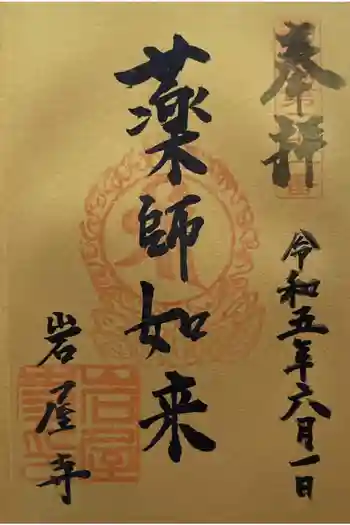 奉拝
令和五年六月一日
薬師如来
岩屋寺